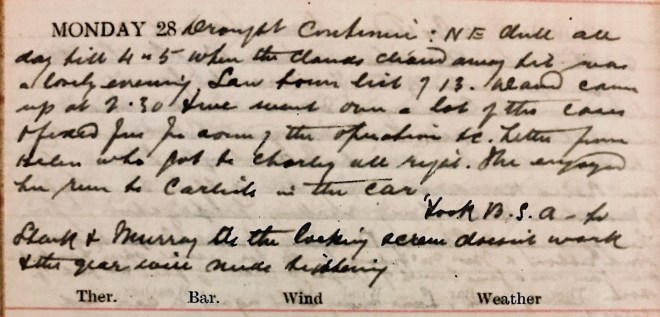 MONDAY 28 Drought Continues: NE dull all
day till 4-5 when the clouds cleared away & it was
a lovely evening. Saw home list of 13. came
up at 2.30 & we went over a lot of the cases
& fixed for some of the operations &c. Letter from
Helen who got to Charley all right. She enjoyed
her run to Carlisle in the car
Took B.S.A - to
Stark & Murray the locking screw doesn't work
& the gear wire needs tightening
Ther. Bar. Wind Weather